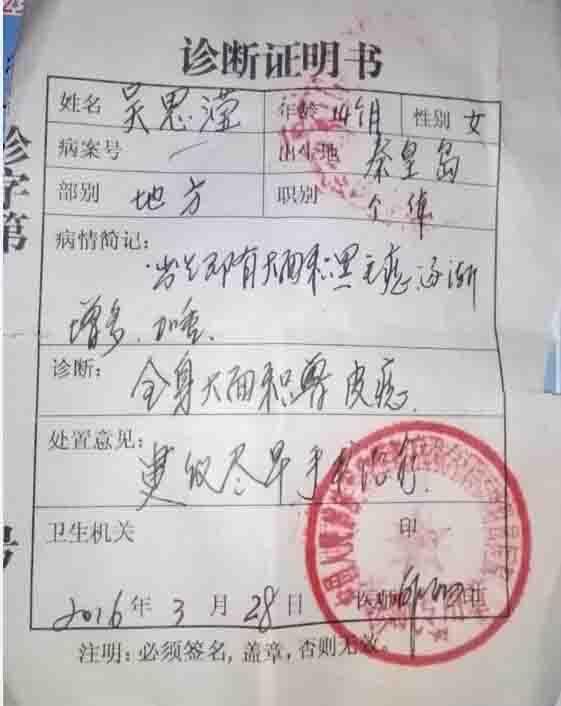 诊断证明书
姓名 吴思滢 年龄 14个月 性别 女
病案号 出生地 秦皇岛
部别 地方 职别 个体
病情简记：
出生即有大面积黑毛痣，逐渐
增多、加重。
诊断：
全身大面积兽皮痣
处置意见：
建议尽早手术治疗。
卫生机关 印
2016 年 3 月 28 日 医师
注明：必须签名，盖章，否则无效。
诊字第
号